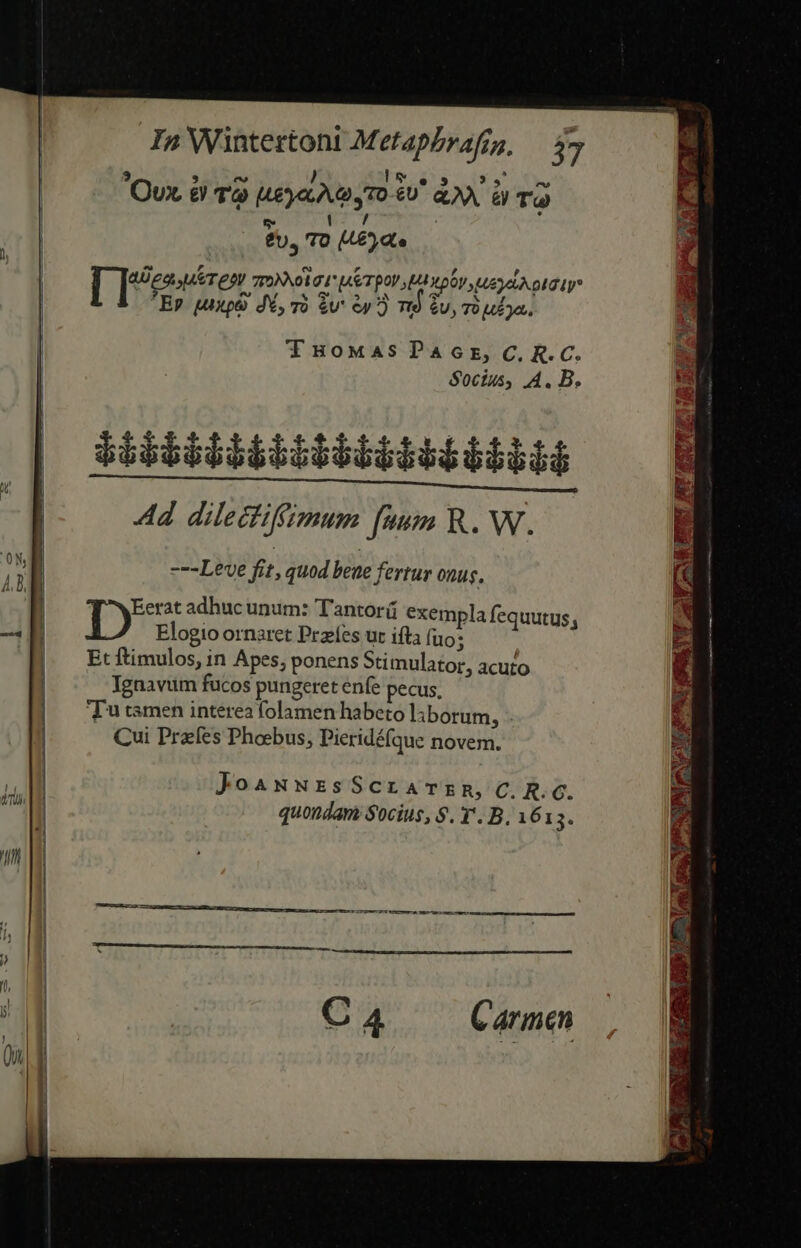 In Wintertoni Metaphrasin. 37
Οὐκ ἐν τῷ μεγάλῳ, τὸ εὖ· ἀλλ' ἐν τῷ
εὖ, τὸ μέγα.
Παῦρα, μέτρον πολλοῖσι· μέτρον, μικρὸν, μεγάλοισιν·
Ἐν μικρῷ δὲ, τὸ εὖ· ἐν τῷ εὖ, τὸ μέγα.
THOMAS PAGE, C. R. C.
Socius, A. B.
Ad dilectiſsimum ſuum R. W.
---Leve fit, quod bene fertur onus.
DEerat adhuc unum: Tantorū exempla ſequutus,
Elogio ornaret Præſes ut iſta ſuo;
Et ſtimulos, in Apes, ponens Stimulator, acuto
Ignavum fucos pungeret enſe pecus.
Tu tamen interea ſolamen habeto laborum,
Cui Præſes Phœbus, Pieridéſque novem.
JOANNES SCLATER, C. R. C.
quondam Socius, S. T. B. 1613.
C 4 Carmen